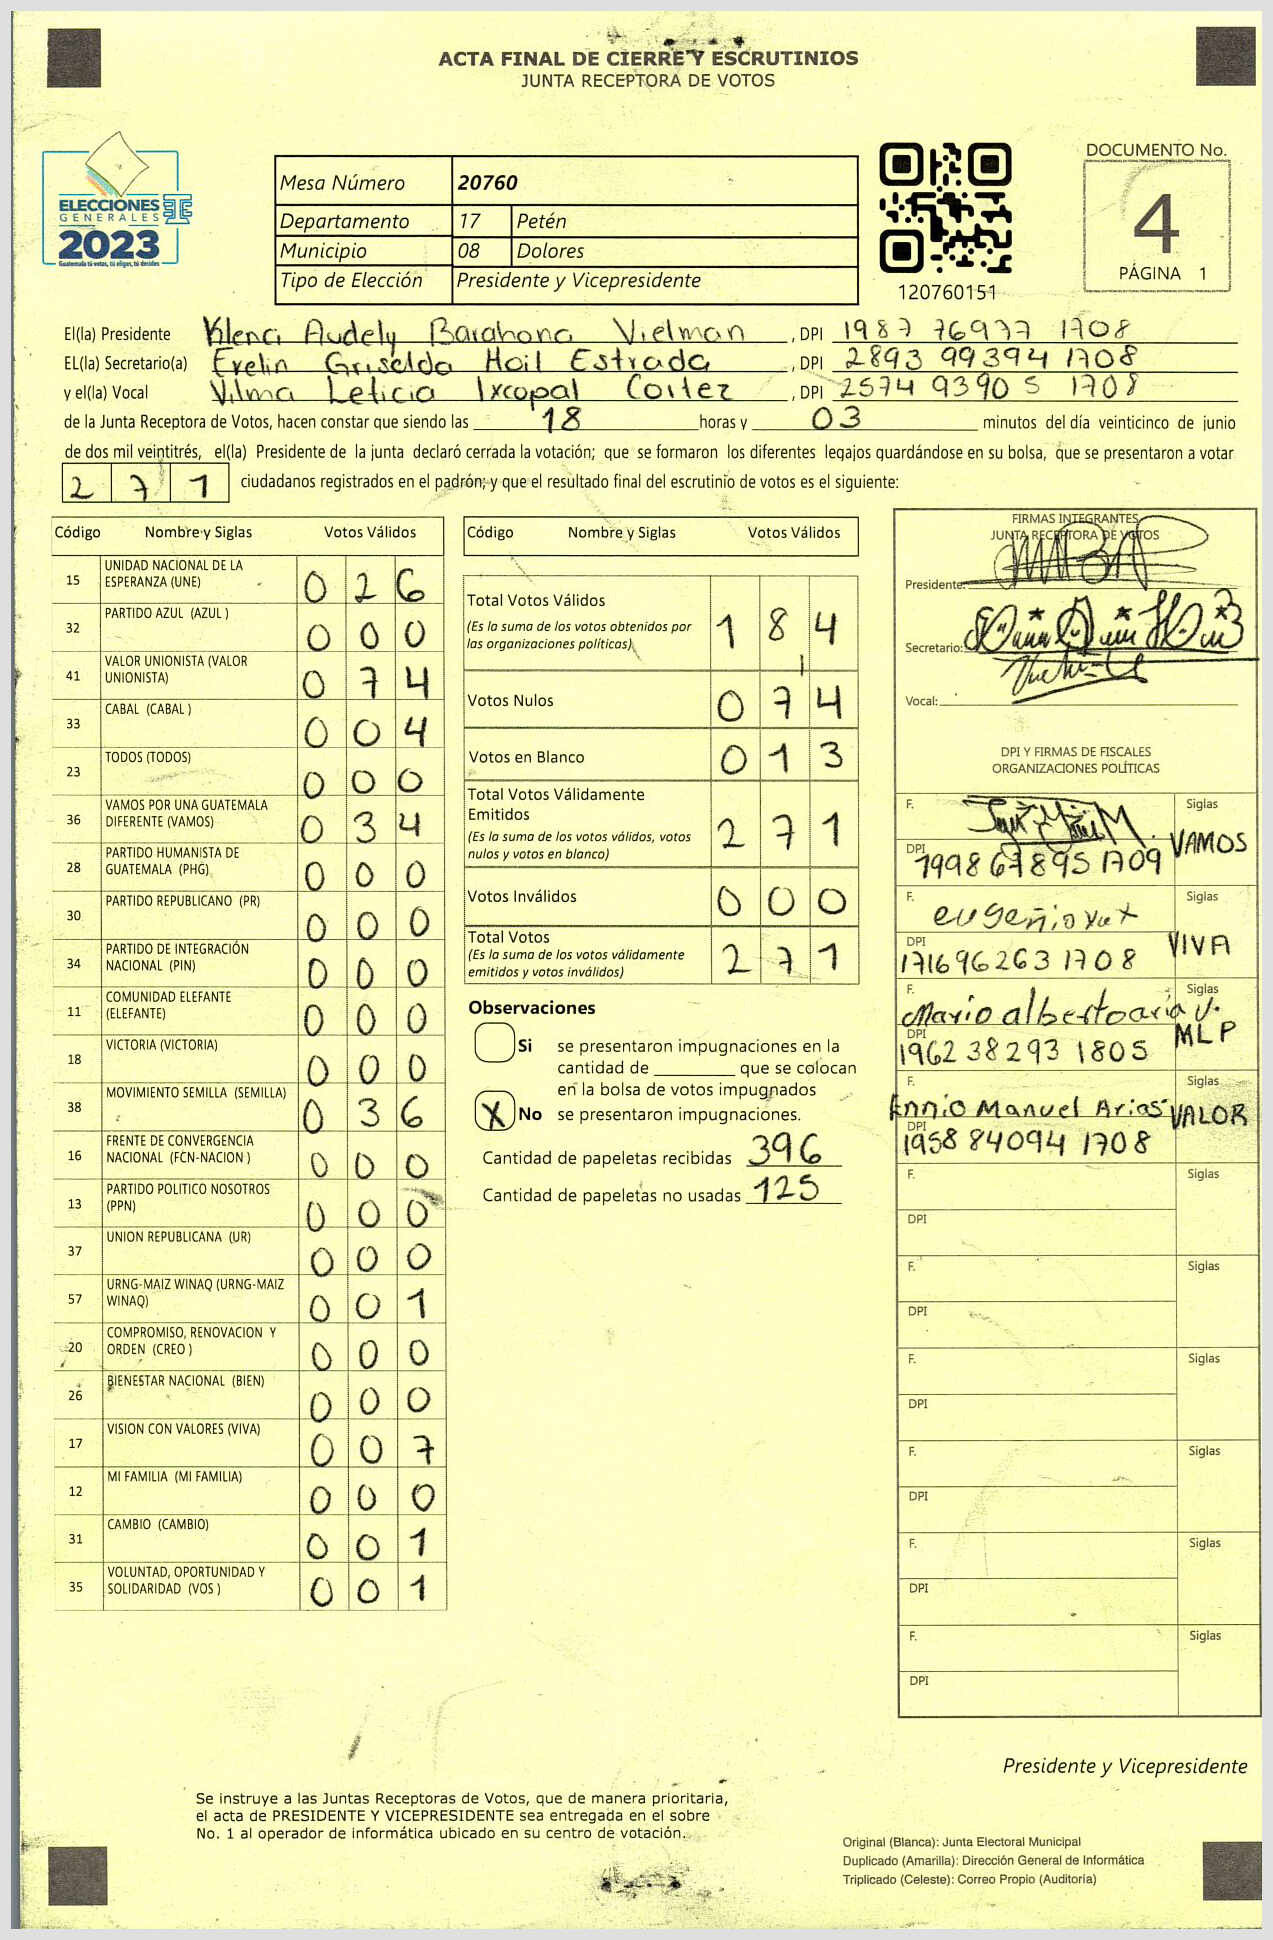 ACTA FINAL DE CIERRE Y ESCRUTINIOS
JUNTA RECEPTORA DE VOTOS
ELECCIONES
GENERALES
2023
Guatemala tú votas, tú eliges, tú decides
Mesa Número 20760
Departamento 17 Petén
Municipio 08 Dolores
Tipo de Elección Presidente y Vicepresidente
120760151
DOCUMENTO No.
4
PÁGINA 1
El(la) Presidente Audely Barahona Vielman , DPI 1987 76977 1708
EL(la) Secretario(a) Evelin Griselda Hoil Estrada , DPI 2893 99394 1708
y el(la) Vocal Vilma Leticia Ixcopal Cortez , DPI 2574 93905 1708
de la Junta Receptora de Votos, hacen constar que siendo las 18 horas y 03 minutos del día veinticinco de junio
de dos mil veintitrés, el(la) Presidente de la junta declaró cerrada la votación; que se formaron los diferentes legajos guardándose en su bolsa, que se presentaron a votar
2 7 1 ciudadanos registrados en el padrón; y que el resultado final del escrutinio de votos es el siguiente:
Código Nombre y Siglas Votos Válidos
15 UNIDAD NACIONAL DE LA
ESPERANZA (UNE) 0 2 6
32 PARTIDO AZUL (AZUL ) 0 0 0
41 VALOR UNIONISTA (VALOR
UNIONISTA) 0 7 4
33 CABAL (CABAL ) 0 0 4
23 TODOS (TODOS) 0 0 0
36 VAMOS POR UNA GUATEMALA
DIFERENTE (VAMOS) 0 3 4
28 PARTIDO HUMANISTA DE
GUATEMALA (PHG) 0 0 0
30 PARTIDO REPUBLICANO (PR) 0 0 0
34 PARTIDO DE INTEGRACIÓN
NACIONAL (PIN) 0 0 0
11 COMUNIDAD ELEFANTE
(ELEFANTE) 0 0 0
18 VICTORIA (VICTORIA) 0 0 0
38 MOVIMIENTO SEMILLA (SEMILLA) 0 3 6
16 FRENTE DE CONVERGENCIA
NACIONAL (FCN-NACION ) 0 0 0
13 PARTIDO POLITICO NOSOTROS
(PPN) 0 0 0
37 UNION REPUBLICANA (UR) 0 0 0
57 URNG-MAIZ WINAQ (URNG-MAIZ
WINAQ) 0 0 1
20 COMPROMISO, RENOVACION Y
ORDEN (CREO ) 0 0 0
26 BIENESTAR NACIONAL (BIEN) 0 0 0
17 VISION CON VALORES (VIVA) 0 0 7
12 MI FAMILIA (MI FAMILIA) 0 0 0
31 CAMBIO (CAMBIO) 0 0 1
35 VOLUNTAD, OPORTUNIDAD Y
SOLIDARIDAD (VOS ) 0 0 1
Código Nombre y Siglas Votos Válidos
Total Votos Válidos
(Es la suma de los votos obtenidos por
las organizaciones políticas) 1 8 4
Votos Nulos 0 7 4
Votos en Blanco 0 1 3
Total Votos Válidamente
Emitidos
(Es la suma de los votos válidos, votos
nulos y votos en blanco) 2 7 1
Votos Inválidos 0 0 0
Total Votos
(Es la suma de los votos válidamente
emitidos y votos inválidos) 2 7 1
Observaciones
Si se presentaron impugnaciones en la
cantidad de ________ que se colocan
en la bolsa de votos impugnados
X No se presentaron impugnaciones.
Cantidad de papeletas recibidas 396
Cantidad de papeletas no usadas 125
FIRMAS INTEGRANTES
JUNTA RECEPTORA DE VOTOS
Presidente:
Secretario:
Vocal:
DPI Y FIRMAS DE FISCALES
ORGANIZACIONES POLÍTICAS
F. Siglas
VAMOS
DPI
1998 67895 1709
F. eugenio Siglas
VIVA
DPI
1716 96263 1708
F. Siglas
Mario alberto V.
MLP
DPI
1962 38293 1805
F. Siglas
Ennio Manuel Arias VALOR
DPI
1958 84094 1708
F. Siglas
DPI
F. Siglas
DPI
F. Siglas
DPI
F. Siglas
DPI
F. Siglas
DPI
F. Siglas
DPI
Presidente y Vicepresidente
Se instruye a las Juntas Receptoras de Votos, que de manera prioritaria,
el acta de PRESIDENTE Y VICEPRESIDENTE sea entregada en el sobre
No. 1 al operador de informática ubicado en su centro de votación.
Original (Blanca): Junta Electoral Municipal
Duplicado (Amarilla): Dirección General de Informática
Triplicado (Celeste): Correo Propio (Auditoría)